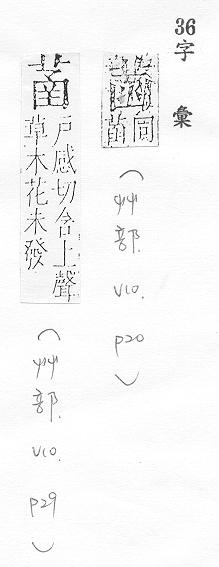 36字彙
同
（艸部. V10. P20）
戶感切含上聲
草木花未發
（艸部. V10. P29）